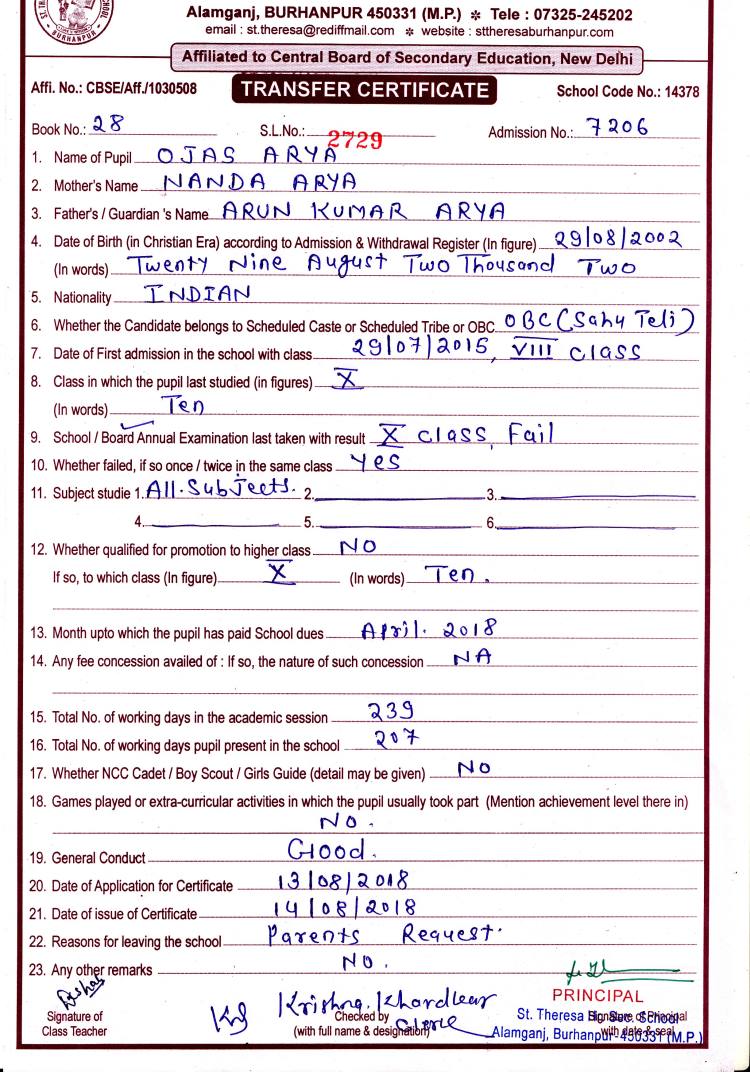 ST. TH
SCHOOL
BURHANPUR
Alamganj, BURHANPUR 450331 (M.P.) * Tele : 07325-245202
email : st.theresa@rediffmail.com * website : sttheresaburhanpur.com
Affiliated to Central Board of Secondary Education, New Delhi
Affi. No.: CBSE/Aff./1030508 TRANSFER CERTIFICATE School Code No.: 14378
Book No.: 28 S.L.No.: 2729 Admission No.: 7206
1. Name of Pupil OJAS ARYA
2. Mother's Name NANDA ARYA
3. Father's / Guardian 's Name ARUN KUMAR ARYA
4. Date of Birth (in Christian Era) according to Admission & Withdrawal Register (In figure) 29/08/2002
(In words) Twenty Nine August Two Thousand Two
5. Nationality INDIAN
6. Whether the Candidate belongs to Scheduled Caste or Scheduled Tribe or OBC OBC (Sahu Teli)
7. Date of First admission in the school with class 29/07/2015, VIII class
8. Class in which the pupil last studied (in figures) X
(In words) Ten
9. School / Board Annual Examination last taken with result X class, Fail
10. Whether failed, if so once / twice in the same class Yes
11. Subject studie 1. All. Subjects. 2. 3.
4. 5. 6.
12. Whether qualified for promotion to higher class NO
If so, to which class (In figure) X (In words) Ten.
13. Month upto which the pupil has paid School dues April. 2018
14. Any fee concession availed of : If so, the nature of such concession NA
15. Total No. of working days in the academic session 239
16. Total No. of working days pupil present in the school 207
17. Whether NCC Cadet / Boy Scout / Girls Guide (detail may be given) NO
18. Games played or extra-curricular activities in which the pupil usually took part (Mention achievement level there in)
NO.
19. General Conduct Good.
20. Date of Application for Certificate 13/08/2018
21. Date of issue of Certificate 14/08/2018
22. Reasons for leaving the school Parents Request.
23. Any other remarks NO.
PRINCIPAL
Krishna. Khardkar
Signature of Checked by St. Theresa Sr. Sec. School Signature of Principal
Class Teacher (with full name & designation) Clerk Alamganj, Burhanpur-450331 (M.P.) with date & seal